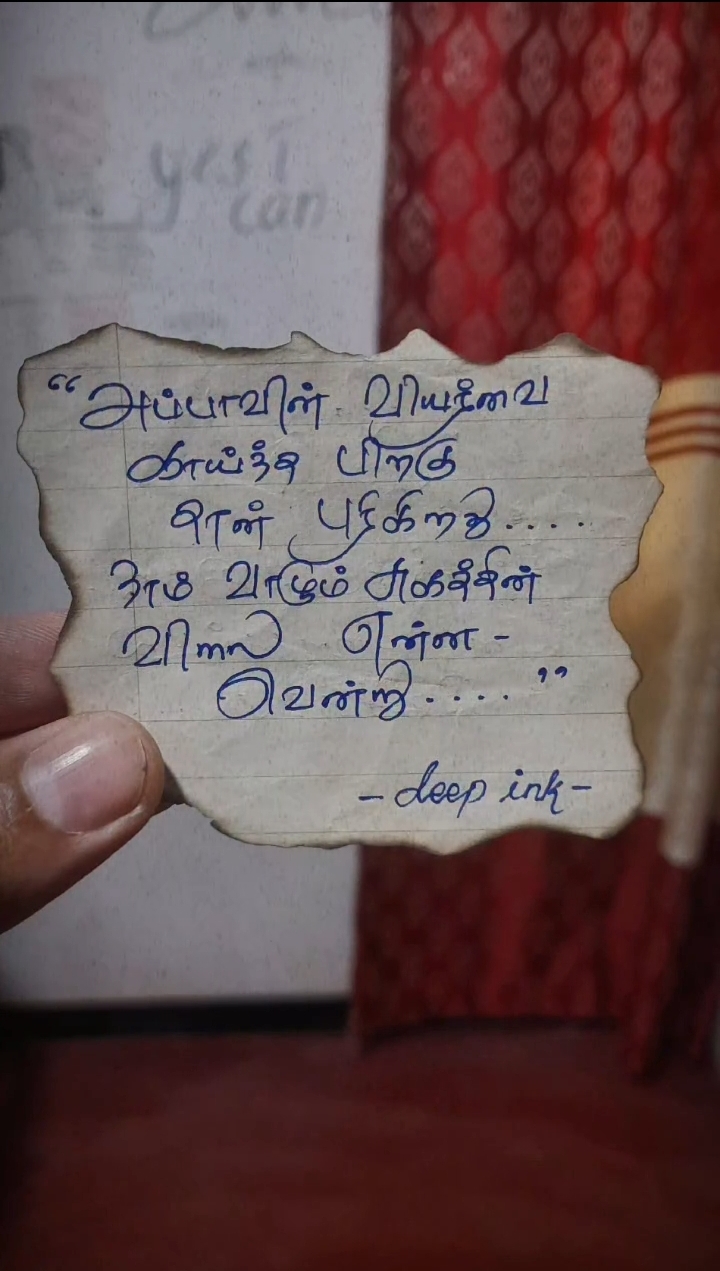 yes I
can
“அப்பாவின் வியர்வை
காய்ந்த பிறகு
தான் புரிகிறது....
நாம் வாழும் சுகத்தின்
விலை என்ன -
வென்று....”
- deep ink -